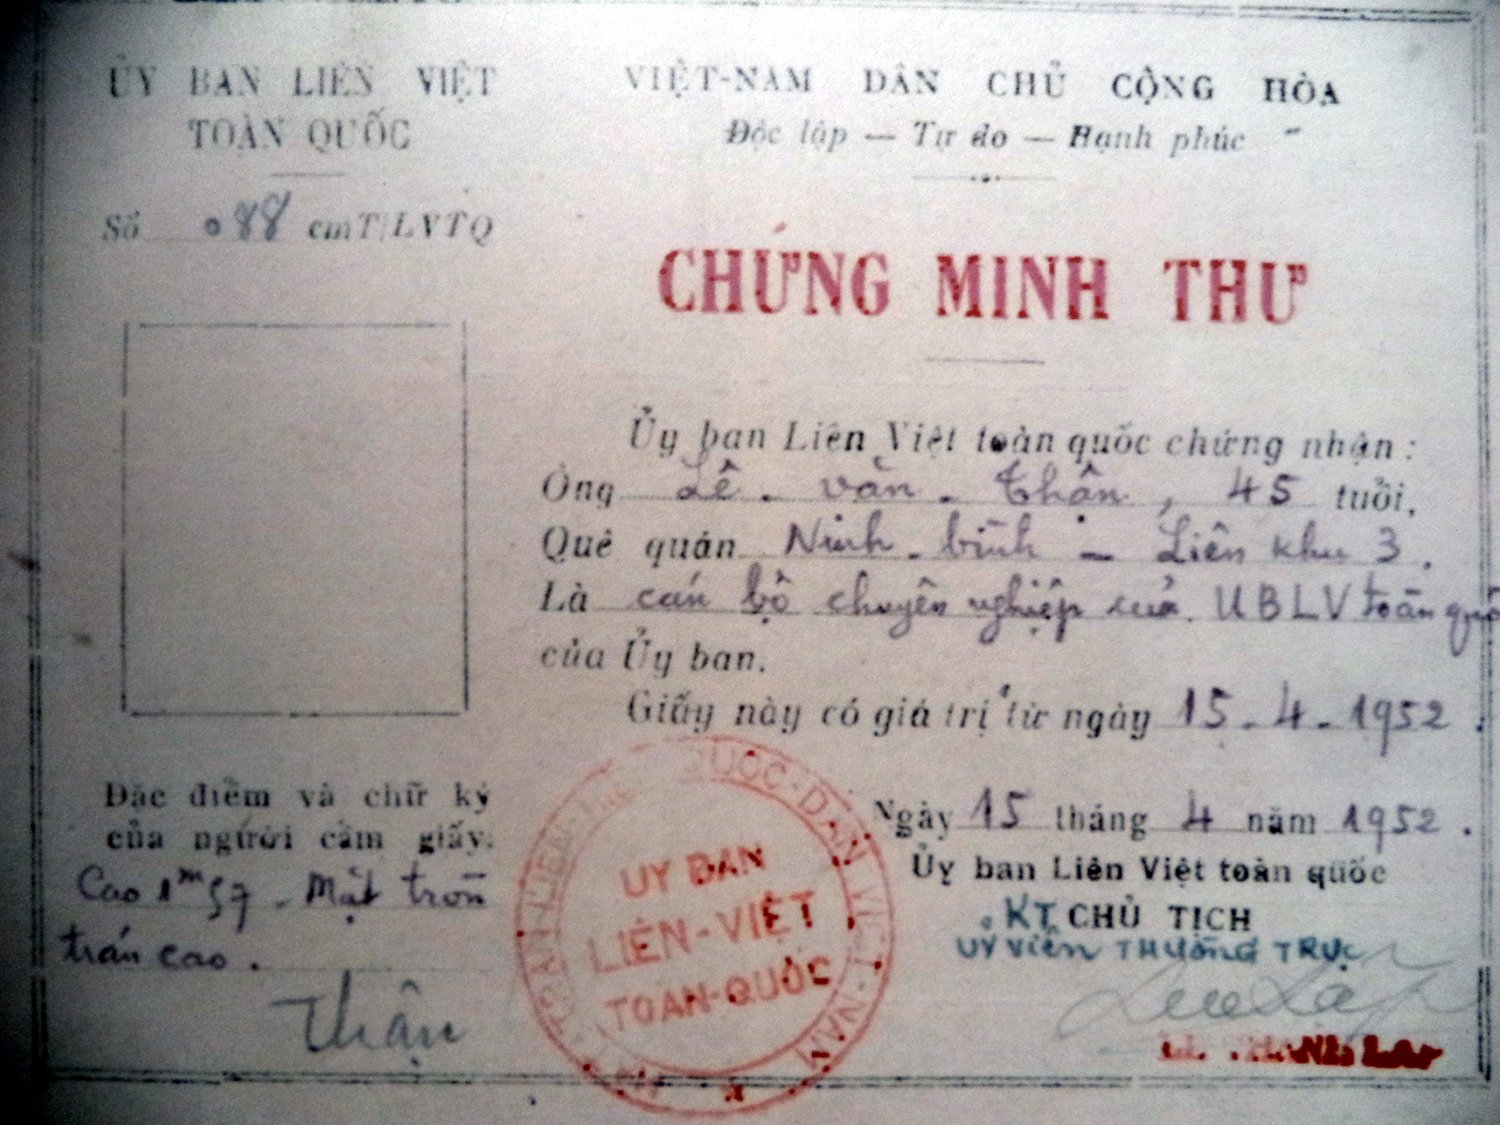 ỦY BAN LIÊN VIỆT
TOÀN QUỐC
Số 088 cmT/LVTQ
VIỆT-NAM DÂN CHỦ CỘNG HÒA
Độc lập — Tự do — Hạnh phúc
CHỨNG MINH THƯ
Ủy ban Liên Việt toàn quốc chứng nhận :
Ông Lê - văn - Thận, 45 tuổi,
Quê quán Ninh - bình - Liên khu 3.
Là cán bộ chuyên nghiệp của UBLV toàn quố
của Ủy ban.
Giấy này có giá trị từ ngày 15-4-1952.
Đặc điểm và chữ ký
của người cầm giấy.
Cao 1m57 - Mặt tròn
trán cao.
Thận
Ngày 15 tháng 4 năm 1952.
Ủy ban Liên Việt toàn quốc
KT. CHỦ TỊCH
UỶ VIÊN THƯỜNG TRỰC
QUỐC-DÂN VIỆT-NAM
UY BAN
LIÊN-VIỆT
TOAN-QUỐC